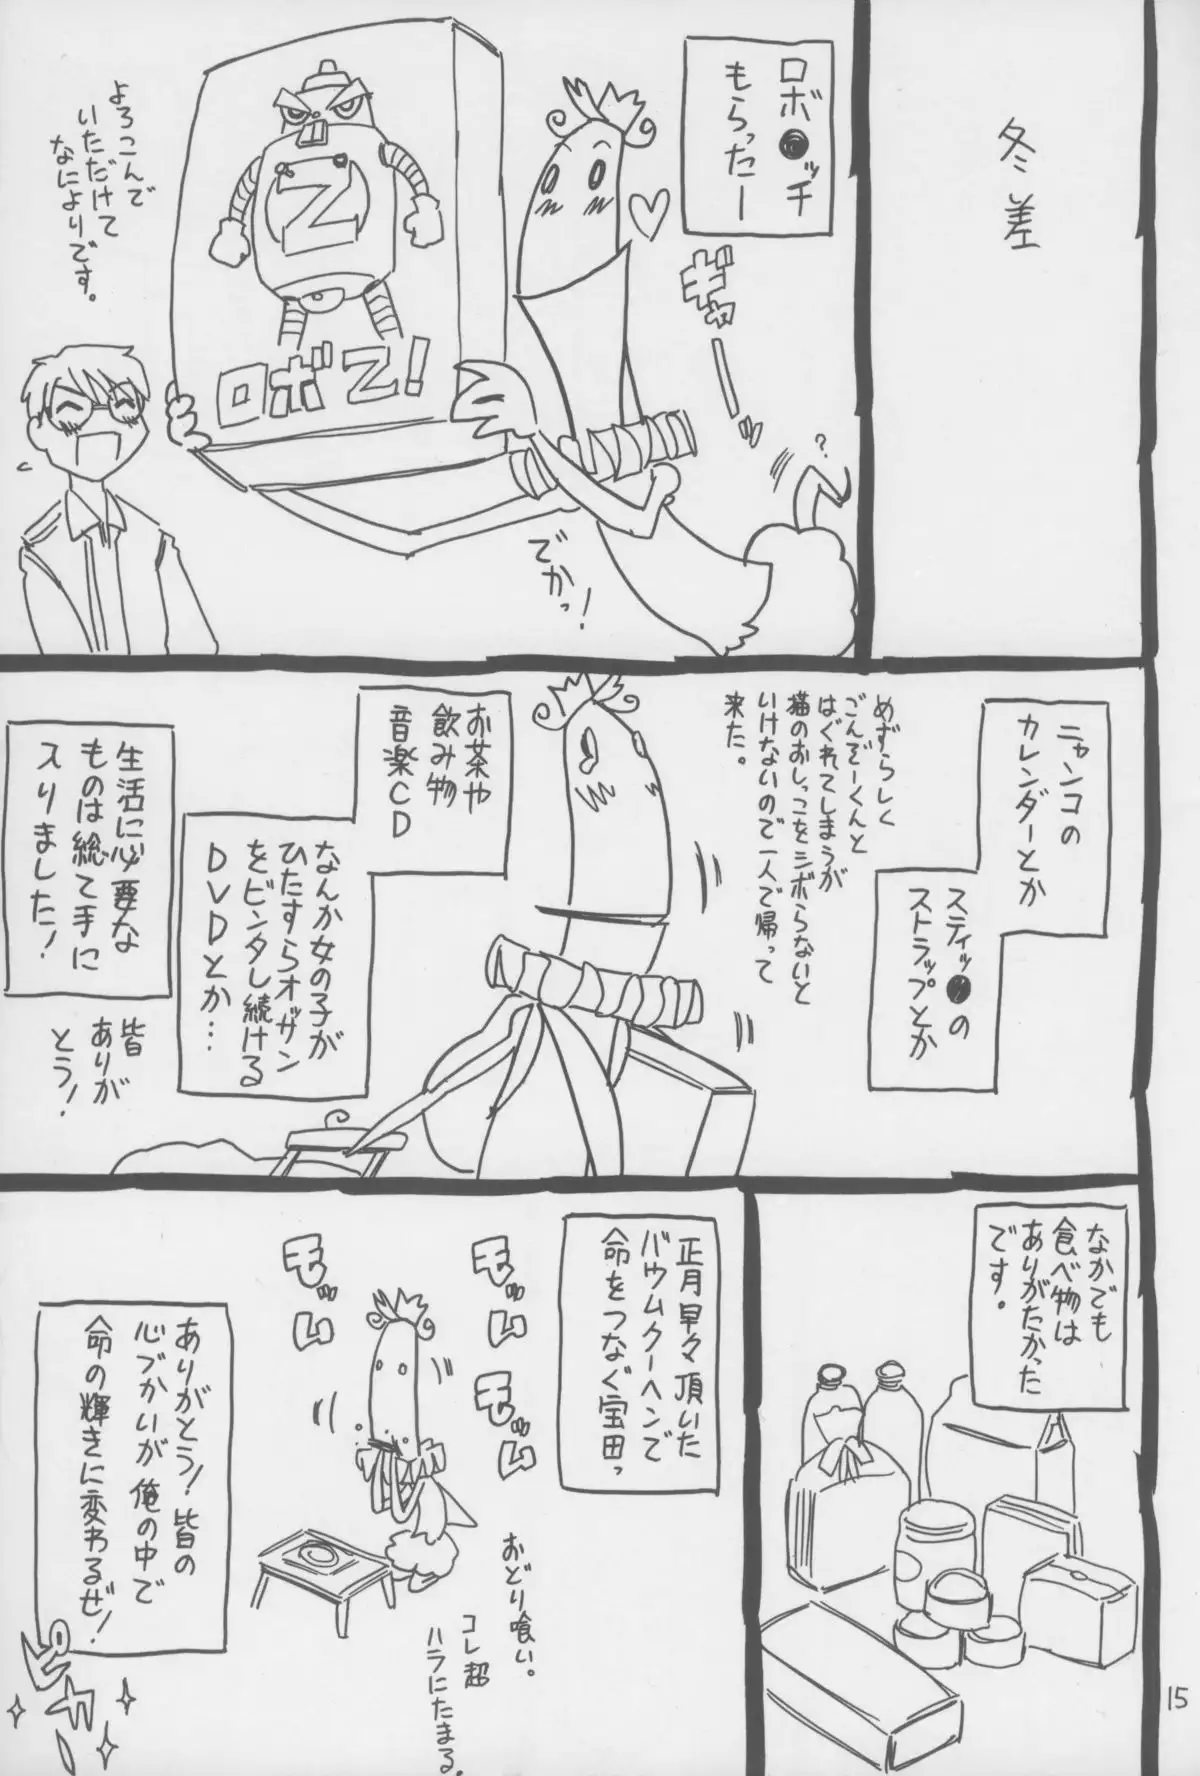 冬差
ロボ●ッチ
もらったー
ギャーーッ
?
でかっ!
Z
ロボZ!
よろこんで
いただけて
なによりです。
ニャンコの
カレンダーとか
スティッ●の
ストラップとか
めずらしく
ごんぞーくんと
はぐれてしまうが
猫のおしっこをシボらないと
いけないので一人で帰って
来た。
お茶や
飲み物
音楽CD
なんか女の子が
ひたすらオッサン
をビンタし続ける
DVDとか…
生活に必要な
ものは総て手に
入りました!
皆
ありが
とう!
なかでも
食べ物は
ありがたかった
です。
正月早々頂いた
バウムクーヘンで
命をつなぐ宝田っ
モッム
モッム
モッム
おどり喰い。
コレ超
ハラにたまる。
ありがとう!皆の
心づかいが俺の中で
命の輝きに変わるぜ!
ピカー
15